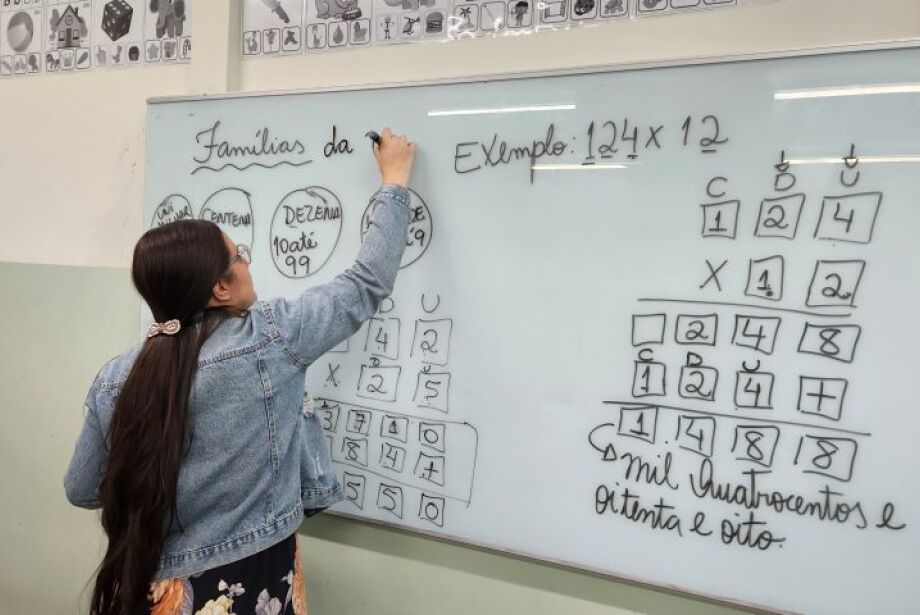 Famílias da
CENTENA
DEZENA
10 até
99
D U
4 2
D U
X 2 5
3 7 1 0
8 4 +
5 5 0
Exemplo: 124 x 12
C D U
1 2 4
X 1 2
2 4 8
C D U
1 2 4 +
1 4 8 8
mil quatrocentos e
oitenta e oito.